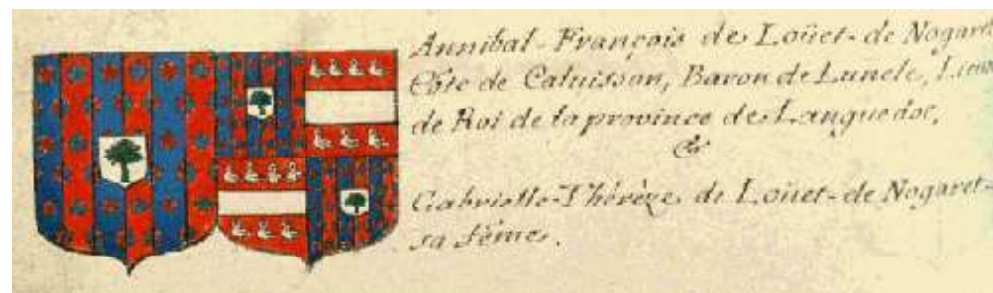 Annibal-François de Loüet-de Nogaret
Cõte de Caluisson, Baron de Lunele,
de Roi de la province de Languedoc,
&
Gabrielle-Thérèze de Loüet-de Nogaret-
sa fẽme.